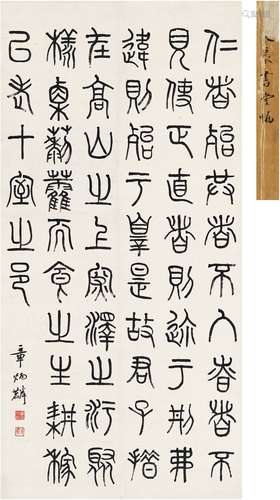 仁者殆共者不入昚者不
見使正直者則迩于刑弗
違則殆于辠是故君子措
在高山之上深澤之污聚
橡栗藜藿而食之生耕稼
㠯老十室之邑
章炳麟